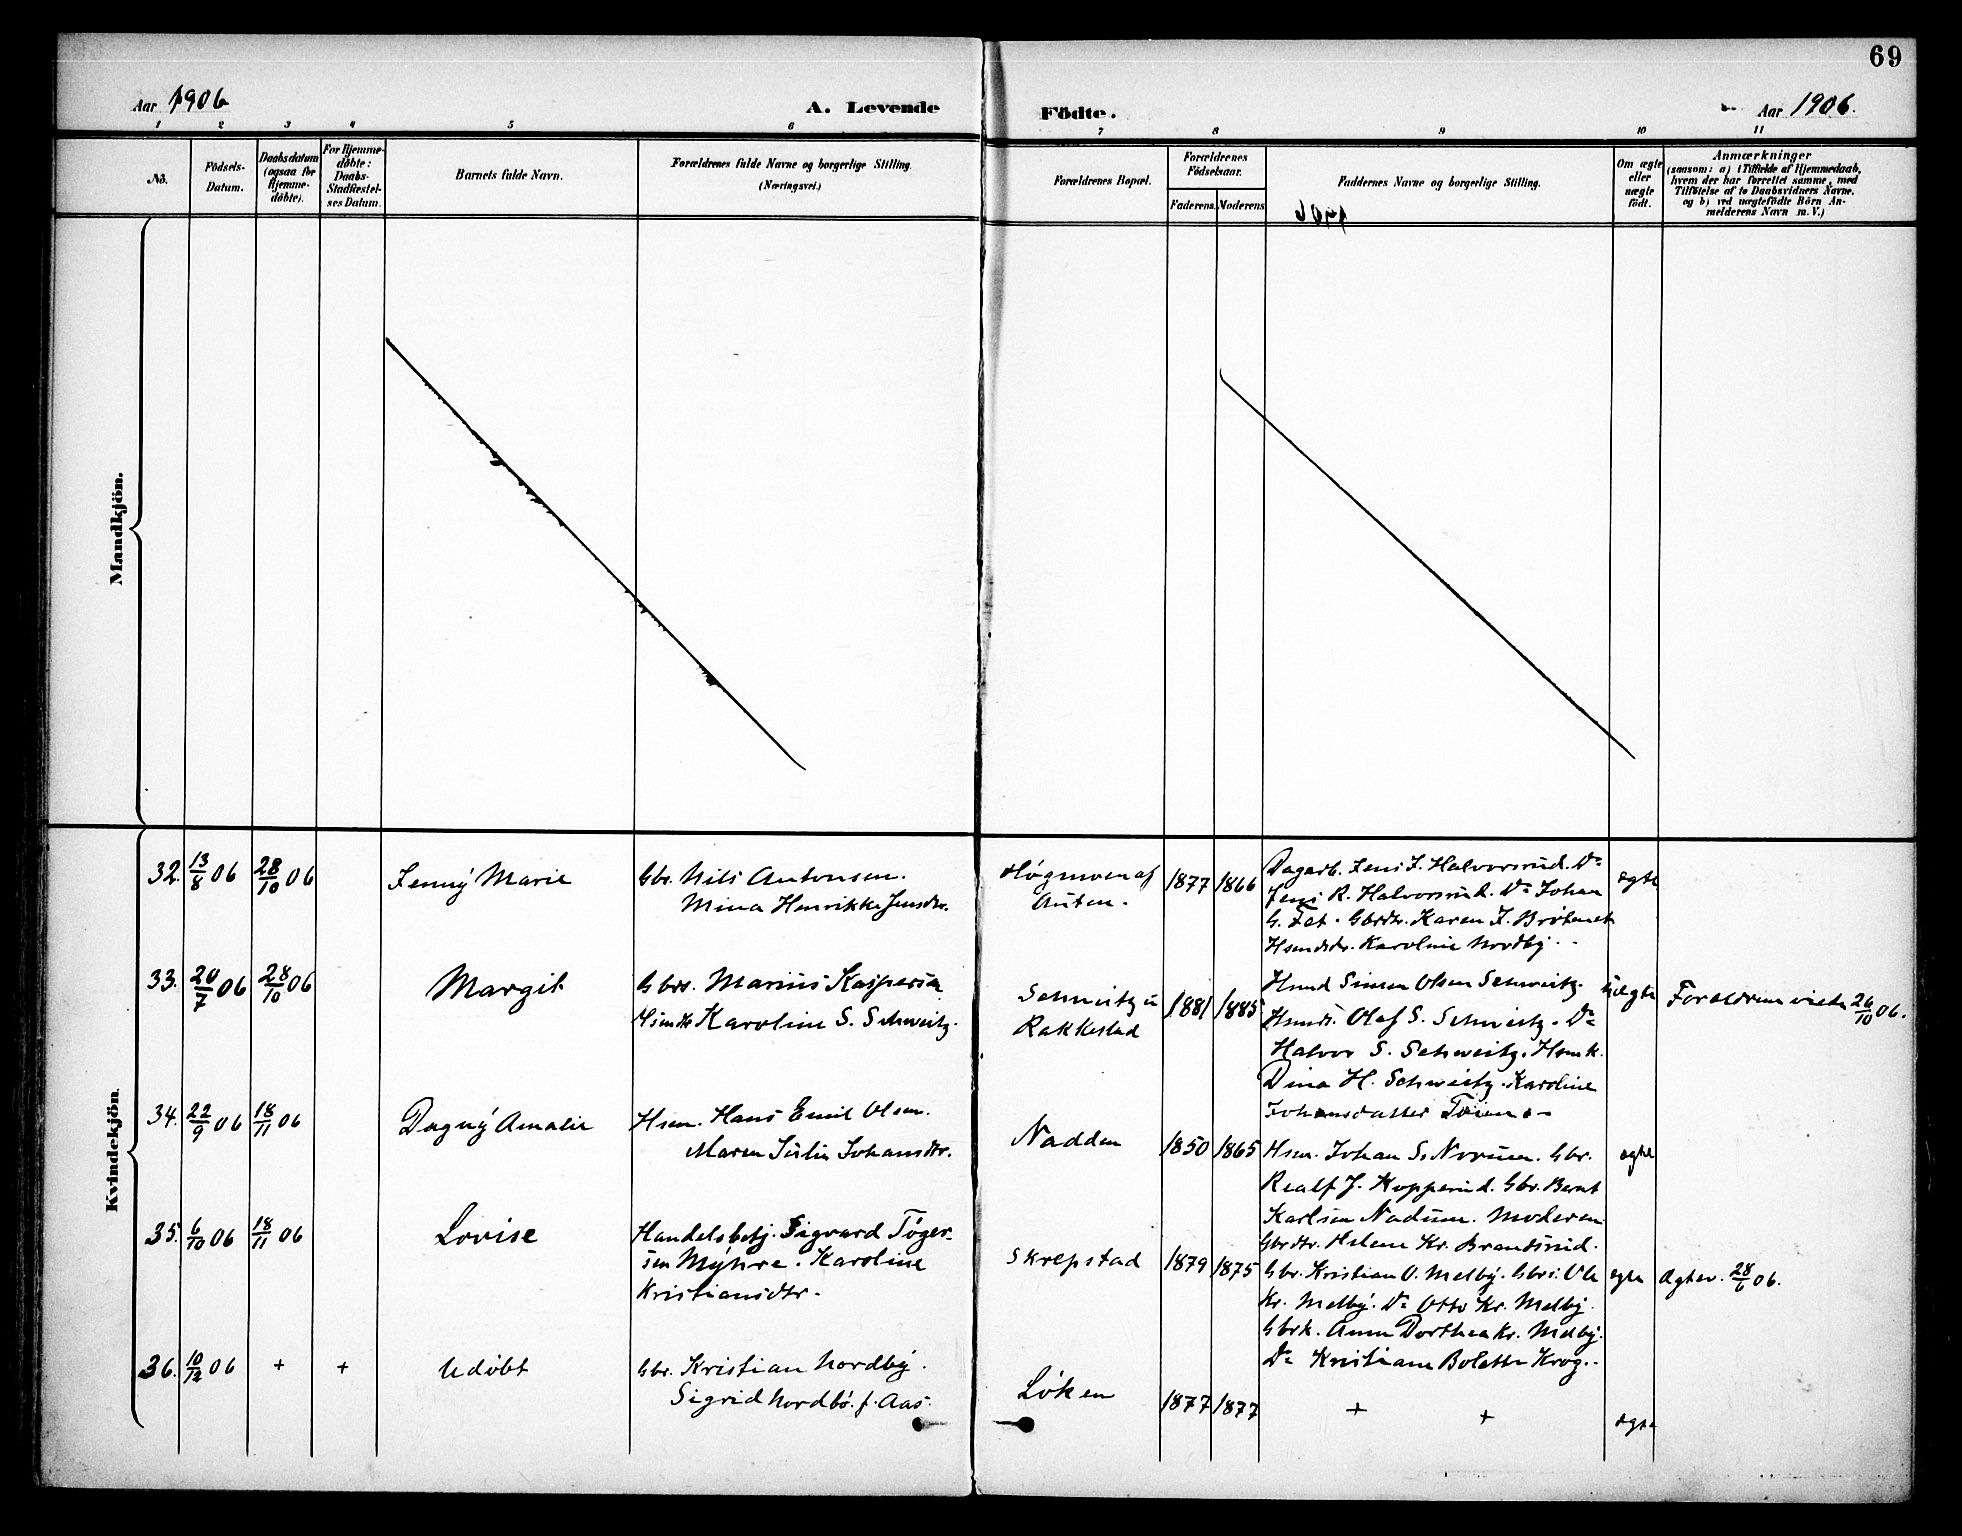 69
Aar 1906
A. Levende
Födte.
Aar 1906.
1 2 3 4 5 6 7 8 9 10 11
No.
Födsels-
Datum.
Daabsdatum
(ogsaa for
Hjemme-
døbte).
For Hjemme-
døbte:
Daabs-
Stadfæstel-
ses Datum.
Barnets fulde Navn.
Forældrenes fulde Navne og borgerlige Stilling.
(Næringsvei.)
Forældrenes Bopæl.
Forældrenes
Födselsaar.
Faderens. Moderens.
Faddernes Navne og borgerlige Stilling.
Om ægte
eller
uægte
födt.
Anmærkninger
(saasom: a) i Tilfælde af Hjemmedaab,
hvem der har forrettet samme, med
Tilføielse af to Daabsvidners Navne,
og b) ved uægtefødte Börn An-
melderens Navn m. V.)
Mandkjön.
Kvindekjön.
32. 13/8 06 28/10 06 Jenny Marie
Gbr. Nils Antonsen.
Mina Henrikke Jensdtr.
Høgmoen af
Auten.
1877 1866
Dagarb. Jens J. Halvorsrud. Do
Jens R. Halvorsrud. Do Johan
G. Gbrdtr. Karen J. Bråtenet
Hsmdtr. Karoline Nordby
ægte
33. 20/7 06 28/10 06 Margit
Gbrs. Marius Kaspersen
Hsmdtr Karoline S. Schweitz.
Schweitz i
Rakkestad
1881 1885
Hsmd Simen Olsen Schweitz.
Hsmds. Olaf S. Schweitz. Do
Halvor S. Schweitz. Hsmk.
Dina H. Schweitz. Karoline
Johansdatter
uægte
Forældrene viede 26/10 06.
34. 22/9 06 18/11 06 Dagny Amalie
Hsm. Hans Emil Olsen.
Maren Julie Johansdtr.
Nadden
1850 1865
Hsm. Johan S. Norum. Gbr.
Realf J. Kopperud. Gbr. Bernt
Karlsen Nadum. Moderen
Gbrdtr. Helene Kr. Brandsrud.
ægte
35. 6/10 06 18/11 06 Lovise
Handelsbetj. Sigvard Tøger-
sen Myhre. Karoline
Kristiansdtr.
Skrepstad
1879 1875
Gbr. Kristian O. Melby. Gbrs. Ole
Kr. Melby. Do Otto Kr. Melby
Gbrk. Anne Dorthea Kr. Melby.
Do Kristiane Bolette Krog.
ægte
Ægtev. 28/6 06.
36. 10/12 06 + + Udøbt
Gbr. Kristian Nordby.
Sigrid Nordbø. f. Aas.
Løken
1877 1877
+ +
ægte